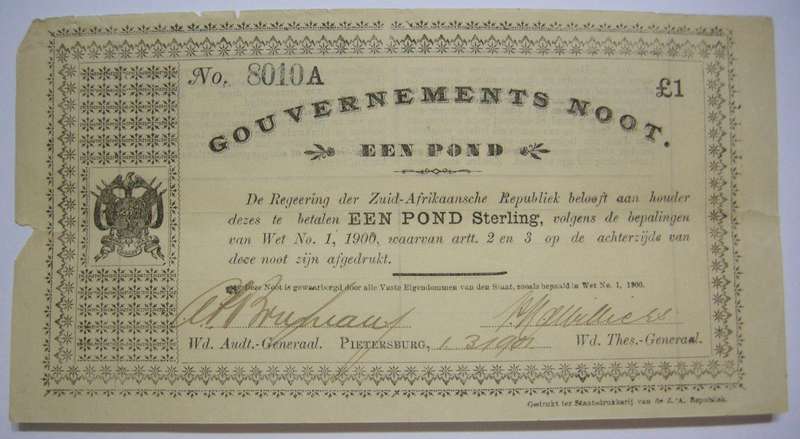 No. 8010 A
£1
GOUVERNEMENTS NOOT.
EEN POND
De Regeering der Zuid-Afrikaansche Republiek belooft aan houder
dezes te betalen EEN POND Sterling, volgens de bepalingen
van Wet No. 1, 1900, waarvan artt. 2 en 3 op de achterzijde van
deze noot zijn afgedrukt.
Deze Noot is gewaarborgd door alle Vaste Eigendommen van den Staat, zooals bepaald in Wet No. 1, 1900.
Wd. Audt.-Generaal. PIETERSBURG, 1 3 1901 Wd. Thes.-Generaal.
Gedrukt ter Staatsdrukkerij van de Z. A. Republiek.